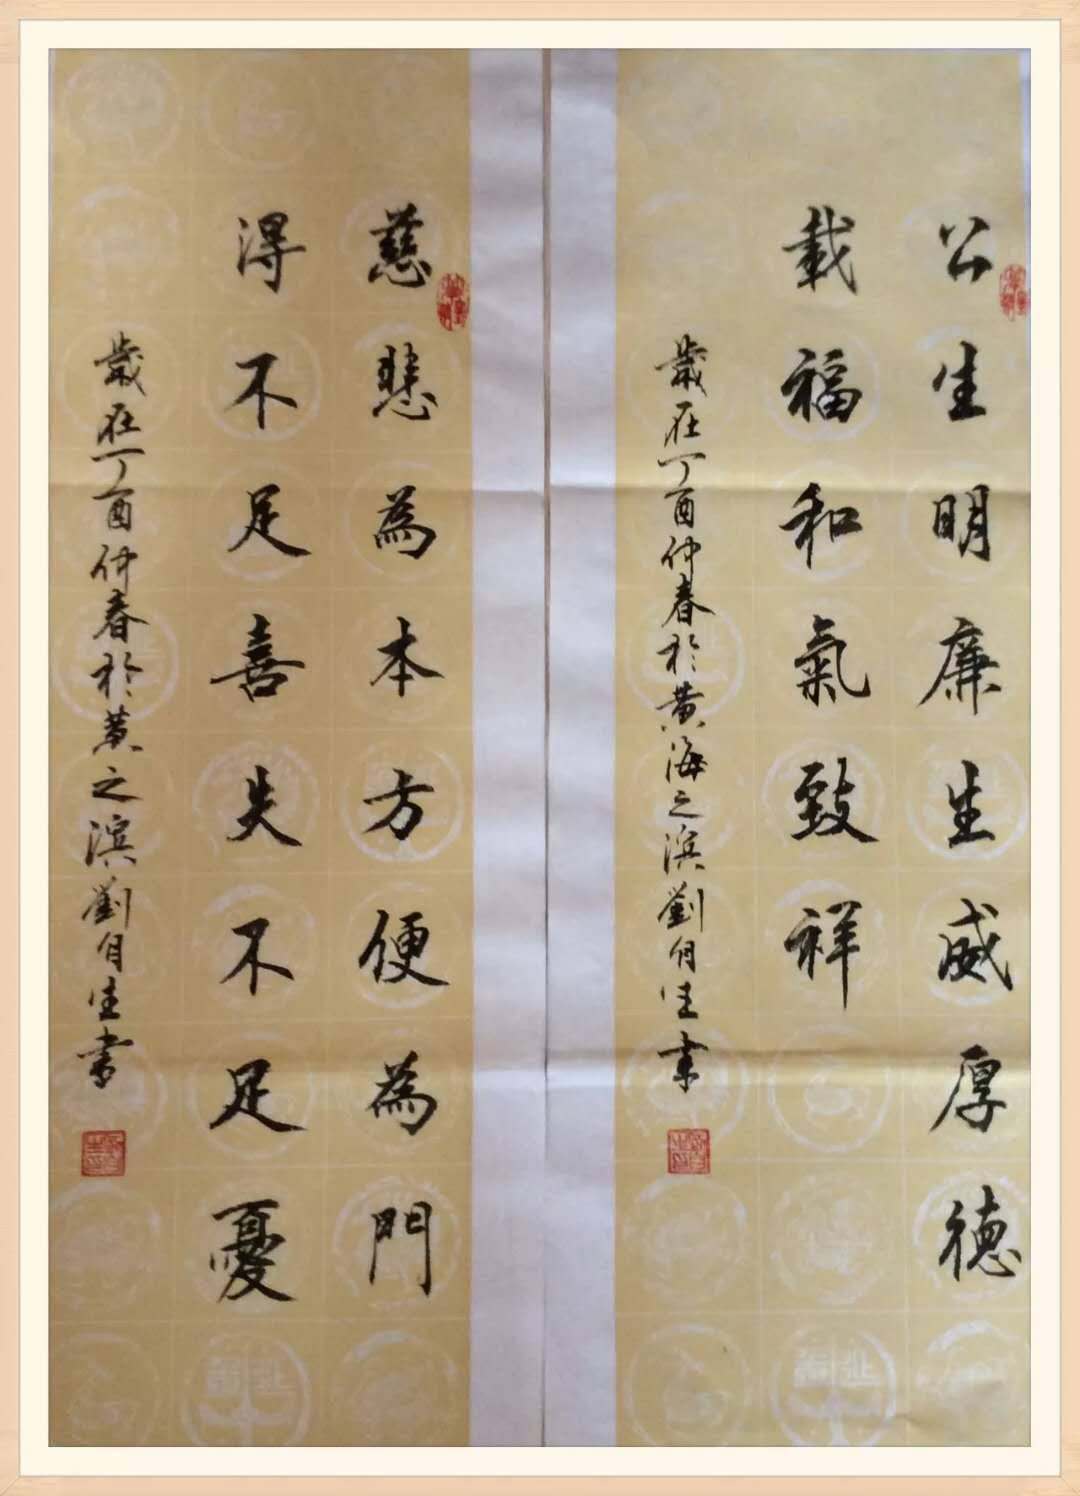 公生明廉生威厚德
載福和氣致祥
歲在丁酉仲春於黄海之滨劉月生書
慈悲為本方便為門
得不足喜失不足憂
歲在丁酉仲春於黄之滨劉月生書